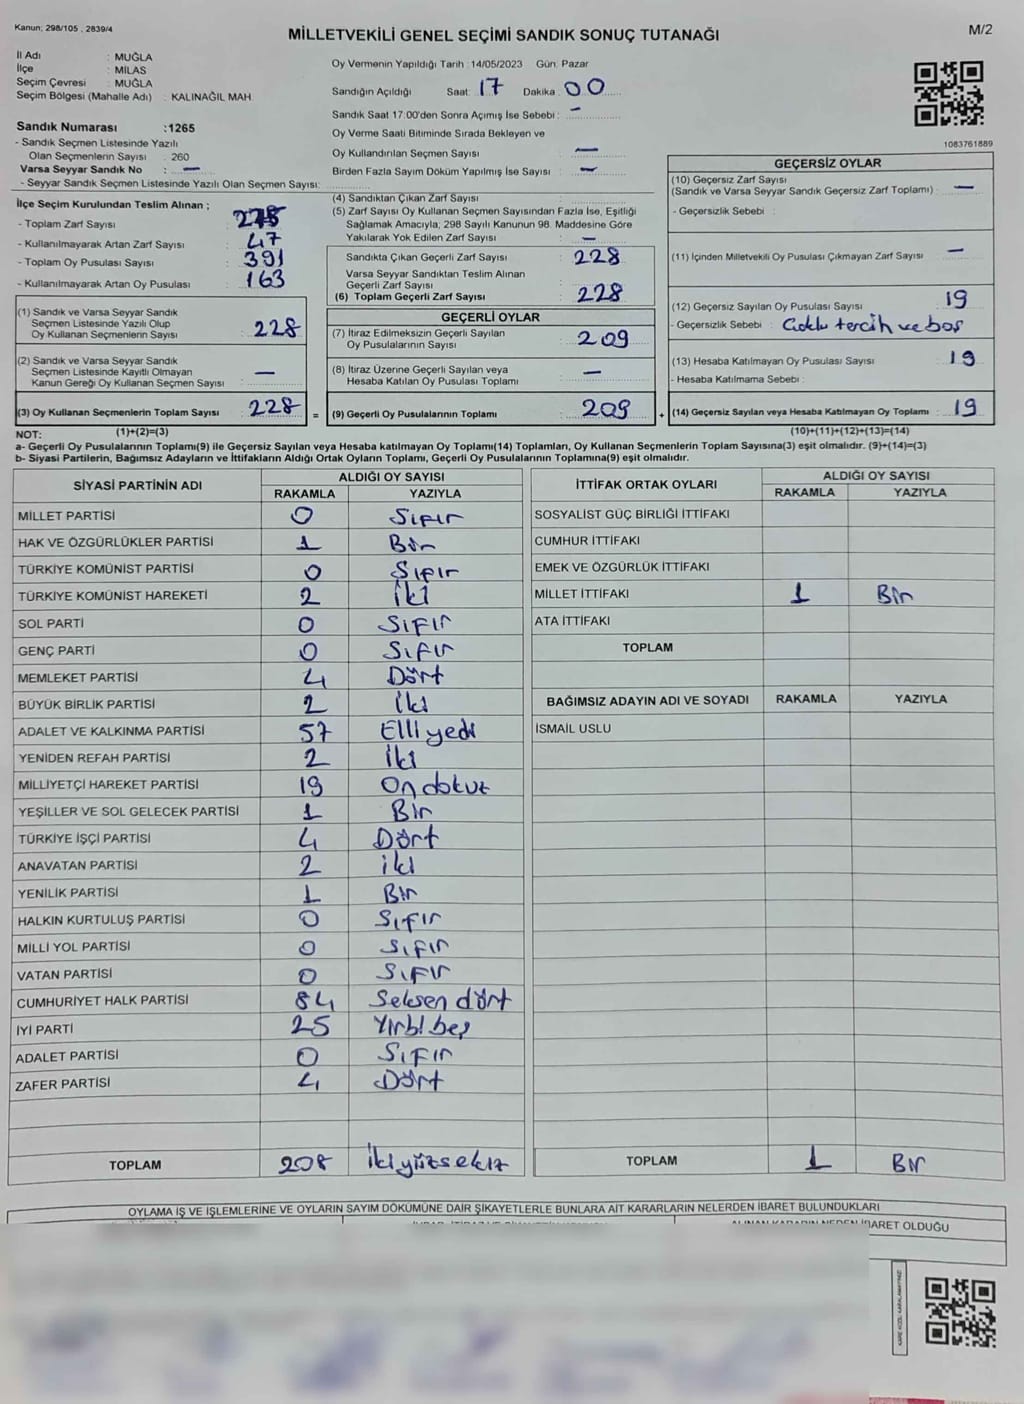 Kanun; 298/105 , 2839/4
MİLLETVEKİLİ GENEL SEÇİMİ SANDIK SONUÇ TUTANAĞI
M/2
İl Adı : MUĞLA
İlçe : MİLAS
Seçim Çevresi : MUĞLA
Seçim Bölgesi (Mahalle Adı) : KALINAĞIL MAH
Sandık Numarası :1265
- Sandık Seçmen Listesinde Yazılı
Olan Seçmenlerin Sayısı : 260
Varsa Seyyar Sandık No : —
- Seyyar Sandık Seçmen Listesinde Yazılı Olan Seçmen Sayısı:
Oy Vermenin Yapıldığı Tarih :14/05/2023 Gün: Pazar
Sandığın Açıldığı Saat: 17 Dakika : 00
Sandık Saat 17:00'den Sonra Açımış İse Sebebi : —
Oy Verme Saati Bitiminde Sırada Bekleyen ve
Oy Kullandırılan Seçmen Sayısı : —
Birden Fazla Sayım Döküm Yapılmış İse Sayısı : —
1083761889
İlçe Seçim Kurulundan Teslim Alınan ;
- Toplam Zarf Sayısı : 275
- Kullanılmayarak Artan Zarf Sayısı : 47
- Toplam Oy Pusulası Sayısı : 391
- Kullanılmayarak Artan Oy Pusulası : 163
(1) Sandık ve Varsa Seyyar Sandık
Seçmen Listesinde Yazılı Olup
Oy Kullanan Seçmenlerin Sayısı : 228
(2) Sandık ve Varsa Seyyar Sandık
Seçmen Listesinde Kayıtlı Olmayan
Kanun Gereği Oy Kullanan Seçmen Sayısı : —
(3) Oy Kullanan Seçmenlerin Toplam Sayısı : 228 =
(4) Sandıktan Çıkan Zarf Sayısı :
(5) Zarf Sayısı Oy Kullanan Seçmen Sayısından Fazla İse, Eşitliği
Sağlamak Amacıyla, 298 Sayılı Kanunun 98. Maddesine Göre
Yakılarak Yok Edilen Zarf Sayısı : —
Sandıkta Çıkan Geçerli Zarf Sayısı : 228
Varsa Seyyar Sandıktan Teslim Alınan
Geçerli Zarf Sayısı :
(6) Toplam Geçerli Zarf Sayısı : 228
GEÇERLİ OYLAR
(7) İtiraz Edilmeksizin Geçerli Sayılan
Oy Pusulalarının Sayısı : 209
(8) İtiraz Üzerine Geçerli Sayılan veya
Hesaba Katılan Oy Pusulası Toplamı : —
(9) Geçerli Oy Pusulalarının Toplamı : 209 +
GEÇERSİZ OYLAR
(10) Geçersiz Zarf Sayısı
(Sandık ve Varsa Seyyar Sandık Geçersiz Zarf Toplamı) : —
- Geçersizlik Sebebi :
(11) İçinden Milletvekili Oy Pusulası Çıkmayan Zarf Sayısı : —
(12) Geçersiz Sayılan Oy Pusulası Sayısı : 19
- Geçersizlik Sebebi : Çoklu tercih ve boş
(13) Hesaba Katılmayan Oy Pusulası Sayısı : 19
- Hesaba Katılmama Sebebi :
(14) Geçersiz Sayılan veya Hesaba Katılmayan Oy Toplamı : 19
NOT: (1)+(2)=(3) (10)+(11)+(12)+(13)=(14)
a- Geçerli Oy Pusulalarının Toplamı(9) ile Geçersiz Sayılan veya Hesaba katılmayan Oy Toplamı(14) Toplamları, Oy Kullanan Seçmenlerin Toplam Sayısına(3) eşit olmalıdır. (9)+(14)=(3)
b- Siyasi Partilerin, Bağımsız Adayların ve İttifakların Aldığı Ortak Oyların Toplamı, Geçerli Oy Pusulalarının Toplamına(9) eşit olmalıdır.
SİYASİ PARTİNİN ADI ALDIĞI OY SAYISI
RAKAMLA YAZIYLA
MİLLET PARTİSİ 0 Sıfır
HAK VE ÖZGÜRLÜKLER PARTİSİ 1 Bir
TÜRKİYE KOMÜNİST PARTİSİ 0 Sıfır
TÜRKİYE KOMÜNİST HAREKETİ 2 İki
SOL PARTİ 0 Sıfır
GENÇ PARTİ 0 Sıfır
MEMLEKET PARTİSİ 4 Dört
BÜYÜK BİRLİK PARTİSİ 2 İki
ADALET VE KALKINMA PARTİSİ 57 Elli yedi
YENİDEN REFAH PARTİSİ 2 İki
MİLLİYETÇİ HAREKET PARTİSİ 19 On dokuz
YEŞİLLER VE SOL GELECEK PARTİSİ 1 Bir
TÜRKİYE İŞÇİ PARTİSİ 4 Dört
ANAVATAN PARTİSİ 2 iki
YENİLİK PARTİSİ 1 Bir
HALKIN KURTULUŞ PARTİSİ 0 Sıfır
MİLLİ YOL PARTİSİ 0 Sıfır
VATAN PARTİSİ 0 Sıfır
CUMHURİYET HALK PARTİSİ 84 Seksen dört
İYİ PARTİ 25 Yirbi beş
ADALET PARTİSİ 0 Sıfır
ZAFER PARTİSİ 4 Dört
TOPLAM 208 İki yüz sekiz
İTTİFAK ORTAK OYLARI ALDIĞI OY SAYISI
RAKAMLA YAZIYLA
SOSYALİST GÜÇ BİRLİĞİ İTTİFAKI
CUMHUR İTTİFAKI
EMEK VE ÖZGÜRLÜK İTTİFAKI
MİLLET İTTİFAKI 1 Bir
ATA İTTİFAKI
TOPLAM
BAĞIMSIZ ADAYIN ADI VE SOYADI RAKAMLA YAZIYLA
İSMAİL USLU
TOPLAM 1 Bir
OYLAMA İŞ VE İŞLEMLERİNE VE OYLARIN SAYIM DÖKÜMÜNE DAİR ŞİKAYETLERLE BUNLARA AİT KARARLARIN NELERDEN İBARET BULUNDUKLARI
ALINAN KARARIN NEDEN İBARET OLDUĞU